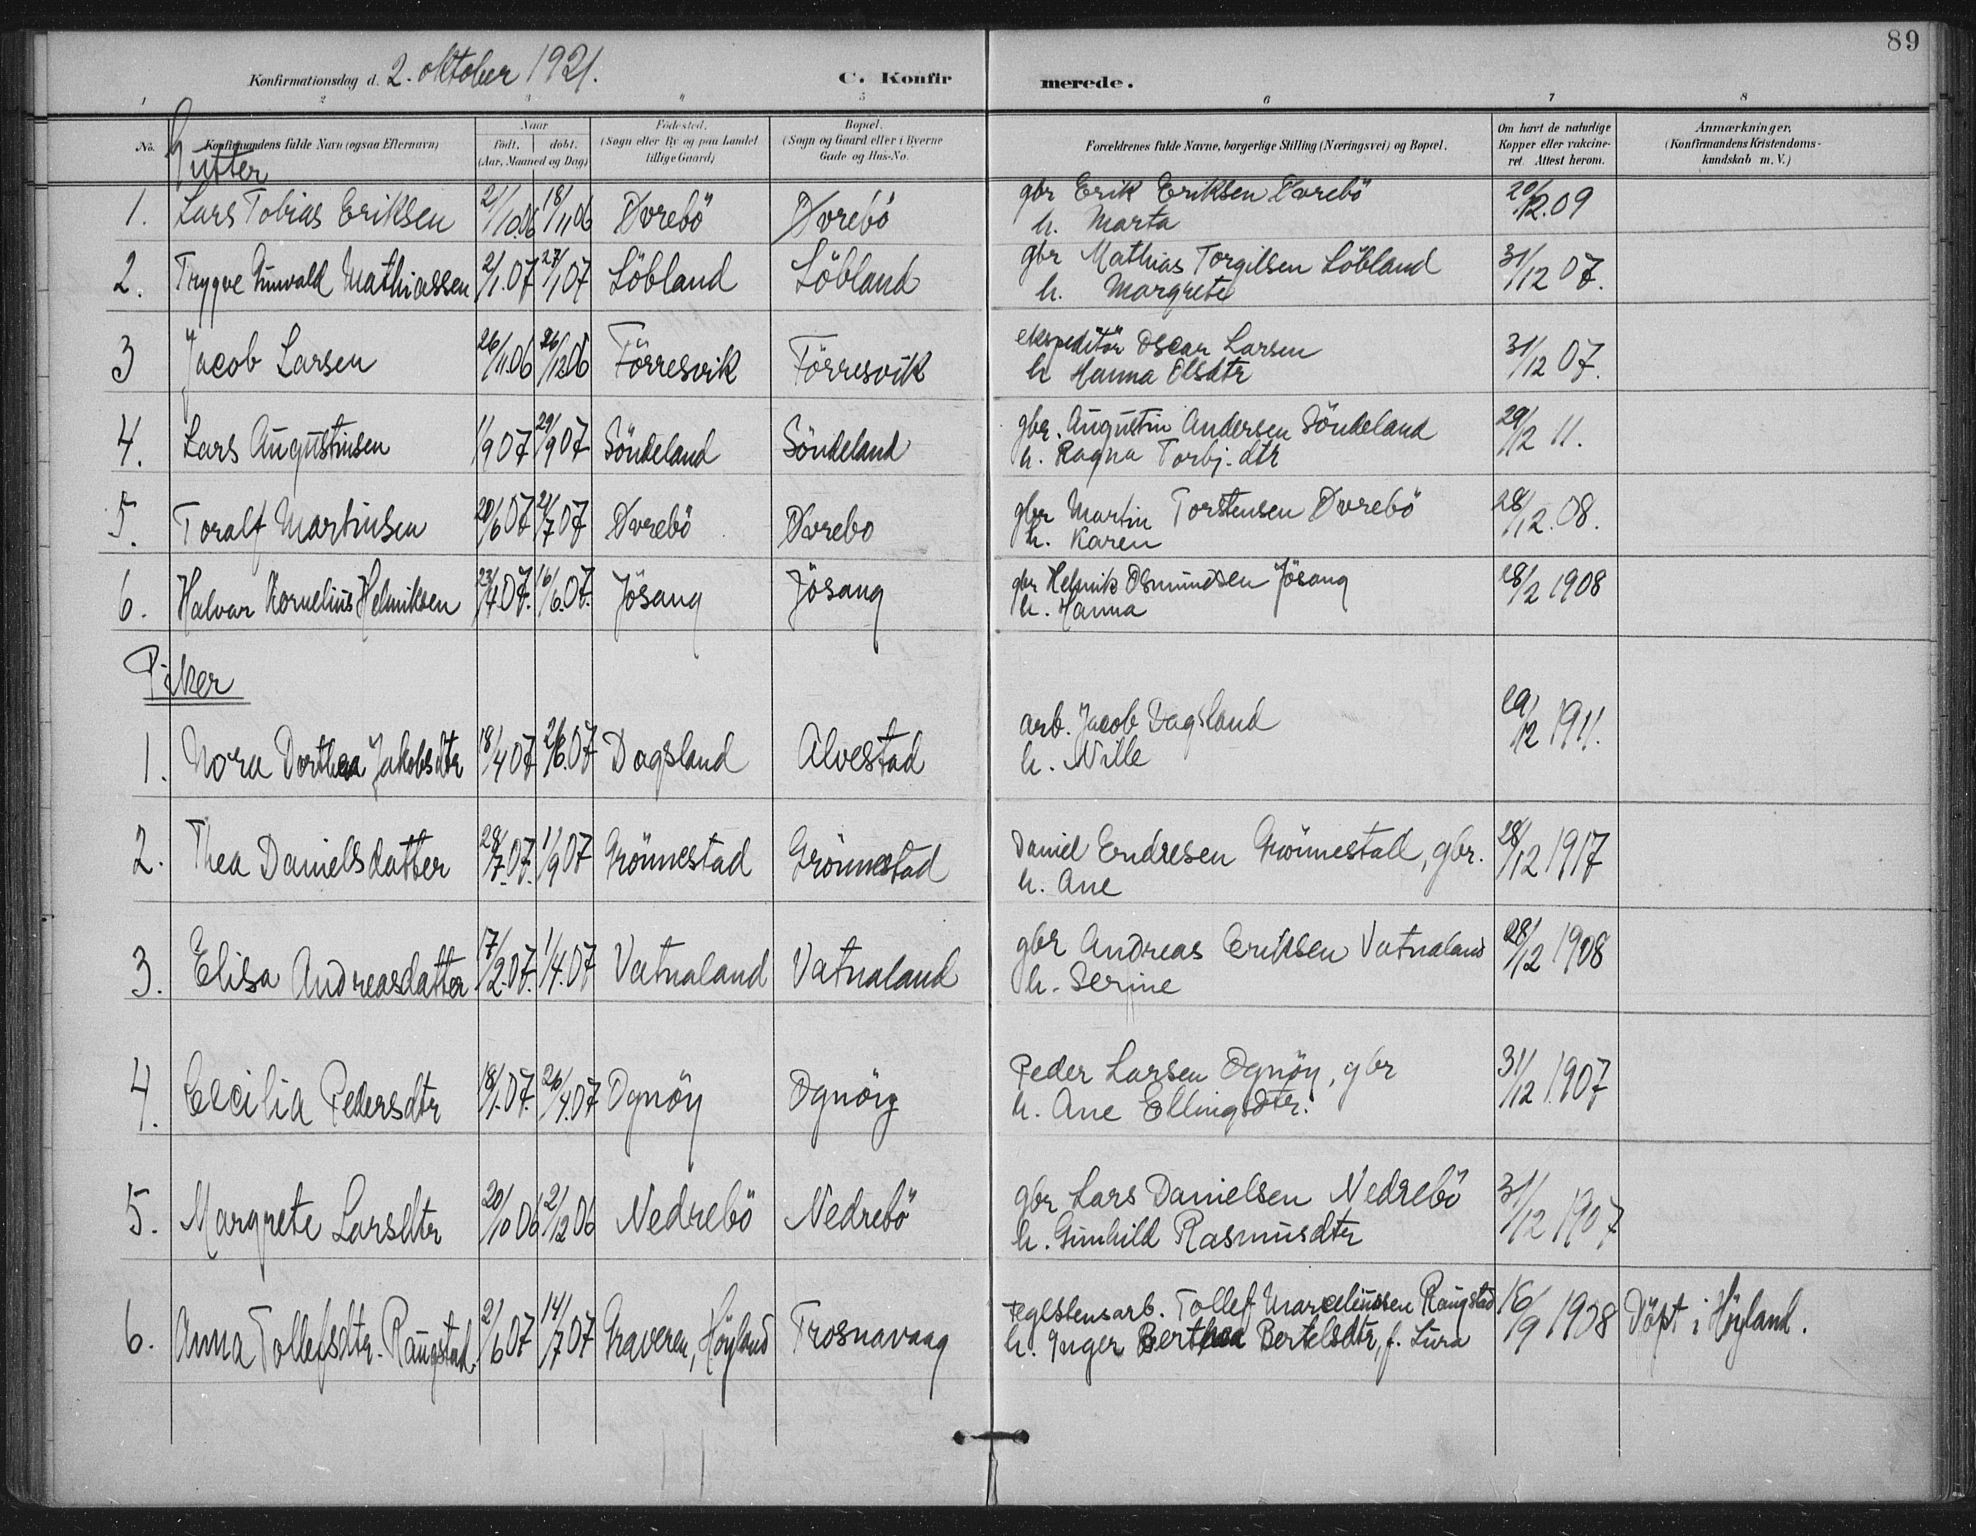 89
Konfirmationsdag d. 2. oktober 1921.
C. Konfirmerede.
1 2 3 4 5 6 7 8
No.
Konfirmandens fulde Navn (ogsaa Efternavn)
Naar
født. døbt.
(Aar, Maaned og Dag)
Fødested.
(Sogn eller By og paa Landet
tillige Gaard)
Bopæl.
(Sogn og Gaard eller i Byerne
Gade og Hus-No.
Forældrenes fulde Navne, borgerlige Stilling (Næringsvei) og Bopæl.
Om havt de naturlige
Kopper eller vakcine-
ret. Attest herom.
Anmærkninger.
(Konfirmandens Kristendoms-
kundskab m. V.)
Gutter
1. Lars Tobias Eriksen 21/10.06 18/11 06 Dvrebö Dvrebö gbr Erik Eriksen Dvrebö 20/12.09
h. Marta
2. Trygve Gunvald Mathiassen 2/1.07 27/1 07 Löbland Löbland gbr Mathias Torgilsen Löbland 31/12 07.
h. Margrete
3 Jacob Larsen 26/11.06 26/12.06 Förresvik Förresvik ekspeditör Oscar Larsen 31/12 07.
h Hanna Olsdtr
4. Lars Augustinsen 1/9 07 29/9 07 Söndeland Söndeland gbr. Augustin Andersen Söndeland 29/12 11.
h. Ragna Torbj.dtr
5. Toralf Martinsen 20/6 07 21/7 07 Dvrebö Dvrebo gbr Martin Torstensen Dvrebö 28/12.08.
h. Karen
6. Halvar Kornelius Helmiksen 23/4.07. 16/6.07. Jösang Jösang gbr Helmik Osmundsen Jösang 28/2 1908
h. Hanna
Piker
1. Nora Dorthea Jakobsdtr 18/4 07 2/6.07 Dagsland Alvestad arb. Jacob Dagsland 29/12 1911.
h. Nille
2. Thea Danielsdatter 28/7.07. 1/9 07 Grönnestad Grönnestad Daniel Endresen Grönnestad, gbr. 28/12 1917
h. Ane
3. Elisa Andreasdatter 17/2.07. 1/4.07 Vatnaland Vatnaland gbr Andreas Eriksen Vatnaland 28/12 1908
h. Serine
4. Cecilia Pedersdtr 18/1.07. 26/4.07 Ognöy Ognöy Peder Larsen Ognöy, gbr 31/12 1907
h. Ane Ellingsdtr.
5. Margrete Larsdtr 20/10 06 2/12 06 Nedrebö Nedrebö gbr Lars Danielsen Nedrebö 31/12 1907
h. Gunhild Rasmusdtr
6. Anna Tollefsdtr. Raugstad 2/6 07 14/7 07 Graveren, Höyland Trosnavaag teglstensarb. Tollef Marceliussen Raugstad 16/9 1908 Döpt i Höyland.
h. Inger Berthea Bertelsdtr, f. Lura